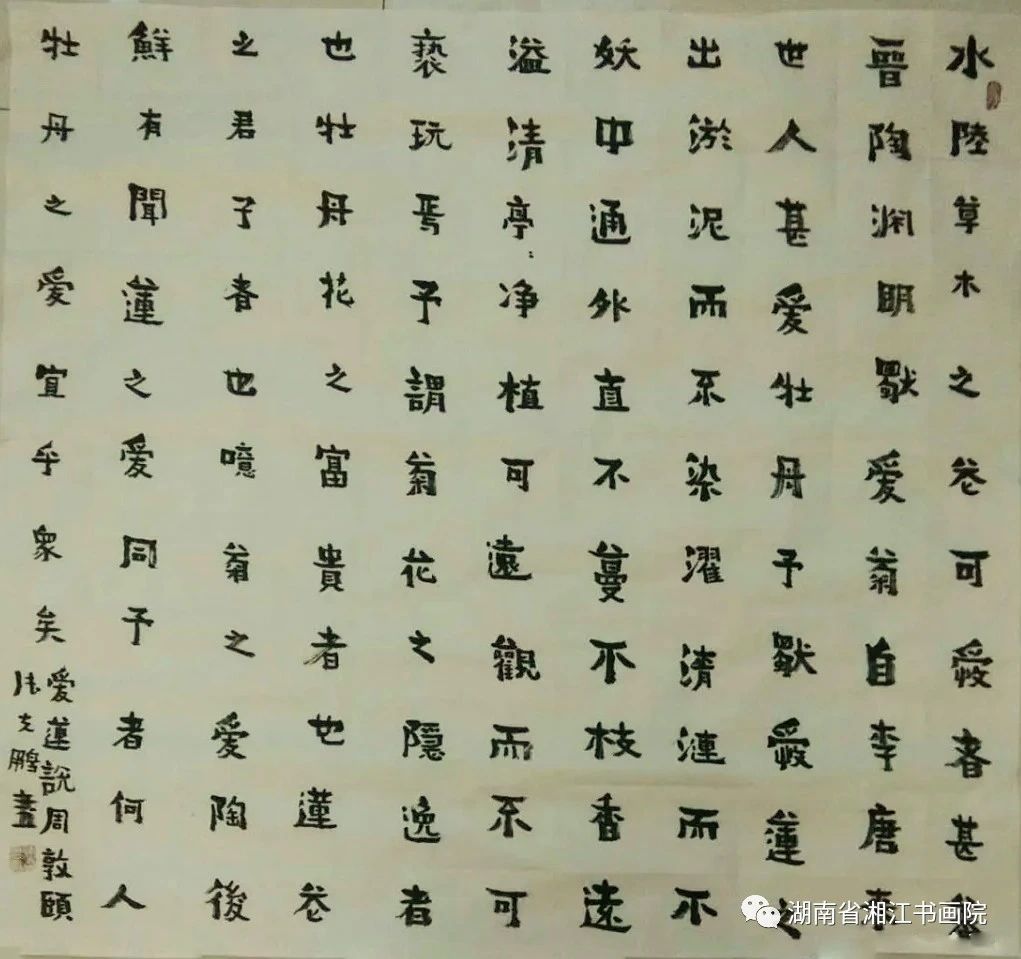 水陸草木之花可愛者甚
晉陶渊明獨愛菊自李唐来
世人甚愛牡丹予獨愛蓮之
出淤泥而不染濯清漣而不
妖中通外直不蔓不枝香遠
溢清亭:净植可遠觀而不可
褻玩焉予謂菊花之隱逸者
也牡丹花之富貴者也蓮花
之君子者也噫菊之愛陶後
鮮有聞蓮之愛同予者何人
牡丹之愛宜乎衆矣
愛蓮說周敦頤
张鹏書
湖南省湘江书画院